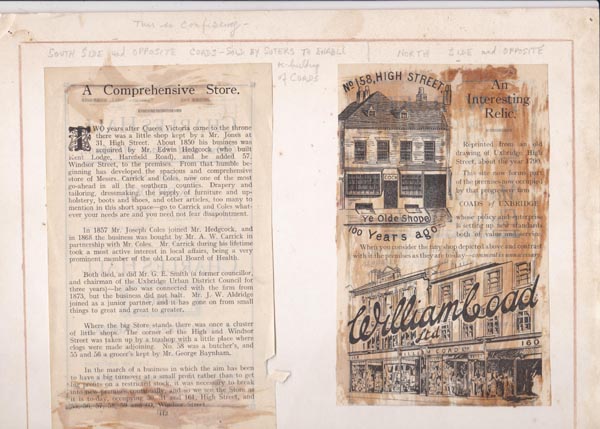 This is confusing -
SOUTH SIDE and OPPOSITE COADS - SOLD BY SUTERS TO ENABLE
re-building
of COADS
NORTH SIDE and OPPOSITE
A Comprehensive Store.
TWO years after Queen Victoria came to the throne
there was a little shop kept by a Mr. Jones at
31, High Street. About 1850 his business was
acquired by Mr. Edwin Hedgcock (who built
Kent Lodge, Harefield Road), and he added 57,
Windsor Street, to the premises. From that humble be-
ginning has developed the spacious and comprehensive
store of Messrs. Carrick and Coles, now one of the most
go-ahead in all the southern counties. Drapery and
tailoring, dressmaking, the supply of furniture and up-
holstery, boots and shoes, and other articles, too many to
mention in this short space—go to Carrick and Coles what-
ever your needs are and you need not fear disappointment.
In 1857 Mr. Joseph Coles joined Mr. Hedgcock, and
in 1868 the business was bought by Mr. A. W. Carrick in
partnership with Mr. Coles. Mr. Carrick during his lifetime
took a most active interest in local affairs, being a very
prominent member of the old Local Board of Health.
Both died, as did Mr. G. R. Smith (a former councillor,
and chairman of the Uxbridge Urban District Council for
three years)—he also was connected with the firm from
1873, but the business did not halt. Mr. J. W. Aldridge
joined as a junior partner, and it has gone on from small
things to great and great to greater.
Where the big Store stands there was once a cluster
of little shops. The corner of the High and Windsor
Street was taken up by a toyshop with a little place where
clogs were made adjoining. No. 58 was a butcher's, and
55 and 56 a grocer's kept by Mr. George Baynham.
In the march of a business in which the aim has been
to have a big turnover at a small profit rather than to get
big on a restricted stock, it was necessary to break
into new premises continually, and so we see the Store as
it is to-day, occupying 31 and 164, High Street, and
55, 56, 57, 58, 59 and 60, Windsor Street.
No 158, HIGH STREET
COAD
Ye Olde Shope
100 Years ago
An
Interesting
Relic.
Reprinted from an old
drawing of Uxbridge High
Street, about the year 1790.
This site now forms part
of the premises now occupied
by that progressive firm
COADS of UXBRIDGE
whose policy and enterprise
is setting up new standards
both of value and service.
When you consider the tiny shop depicted above and contrast
with it the premises as they are to-day—
William Coad
Ltd
160